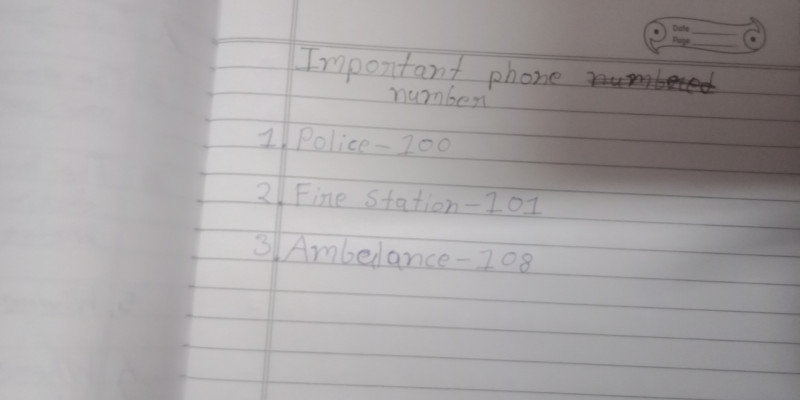 Date
Page
Important phone numbered
number
1. Police - 100
2. Fire Station - 101
3. Ambelance - 108